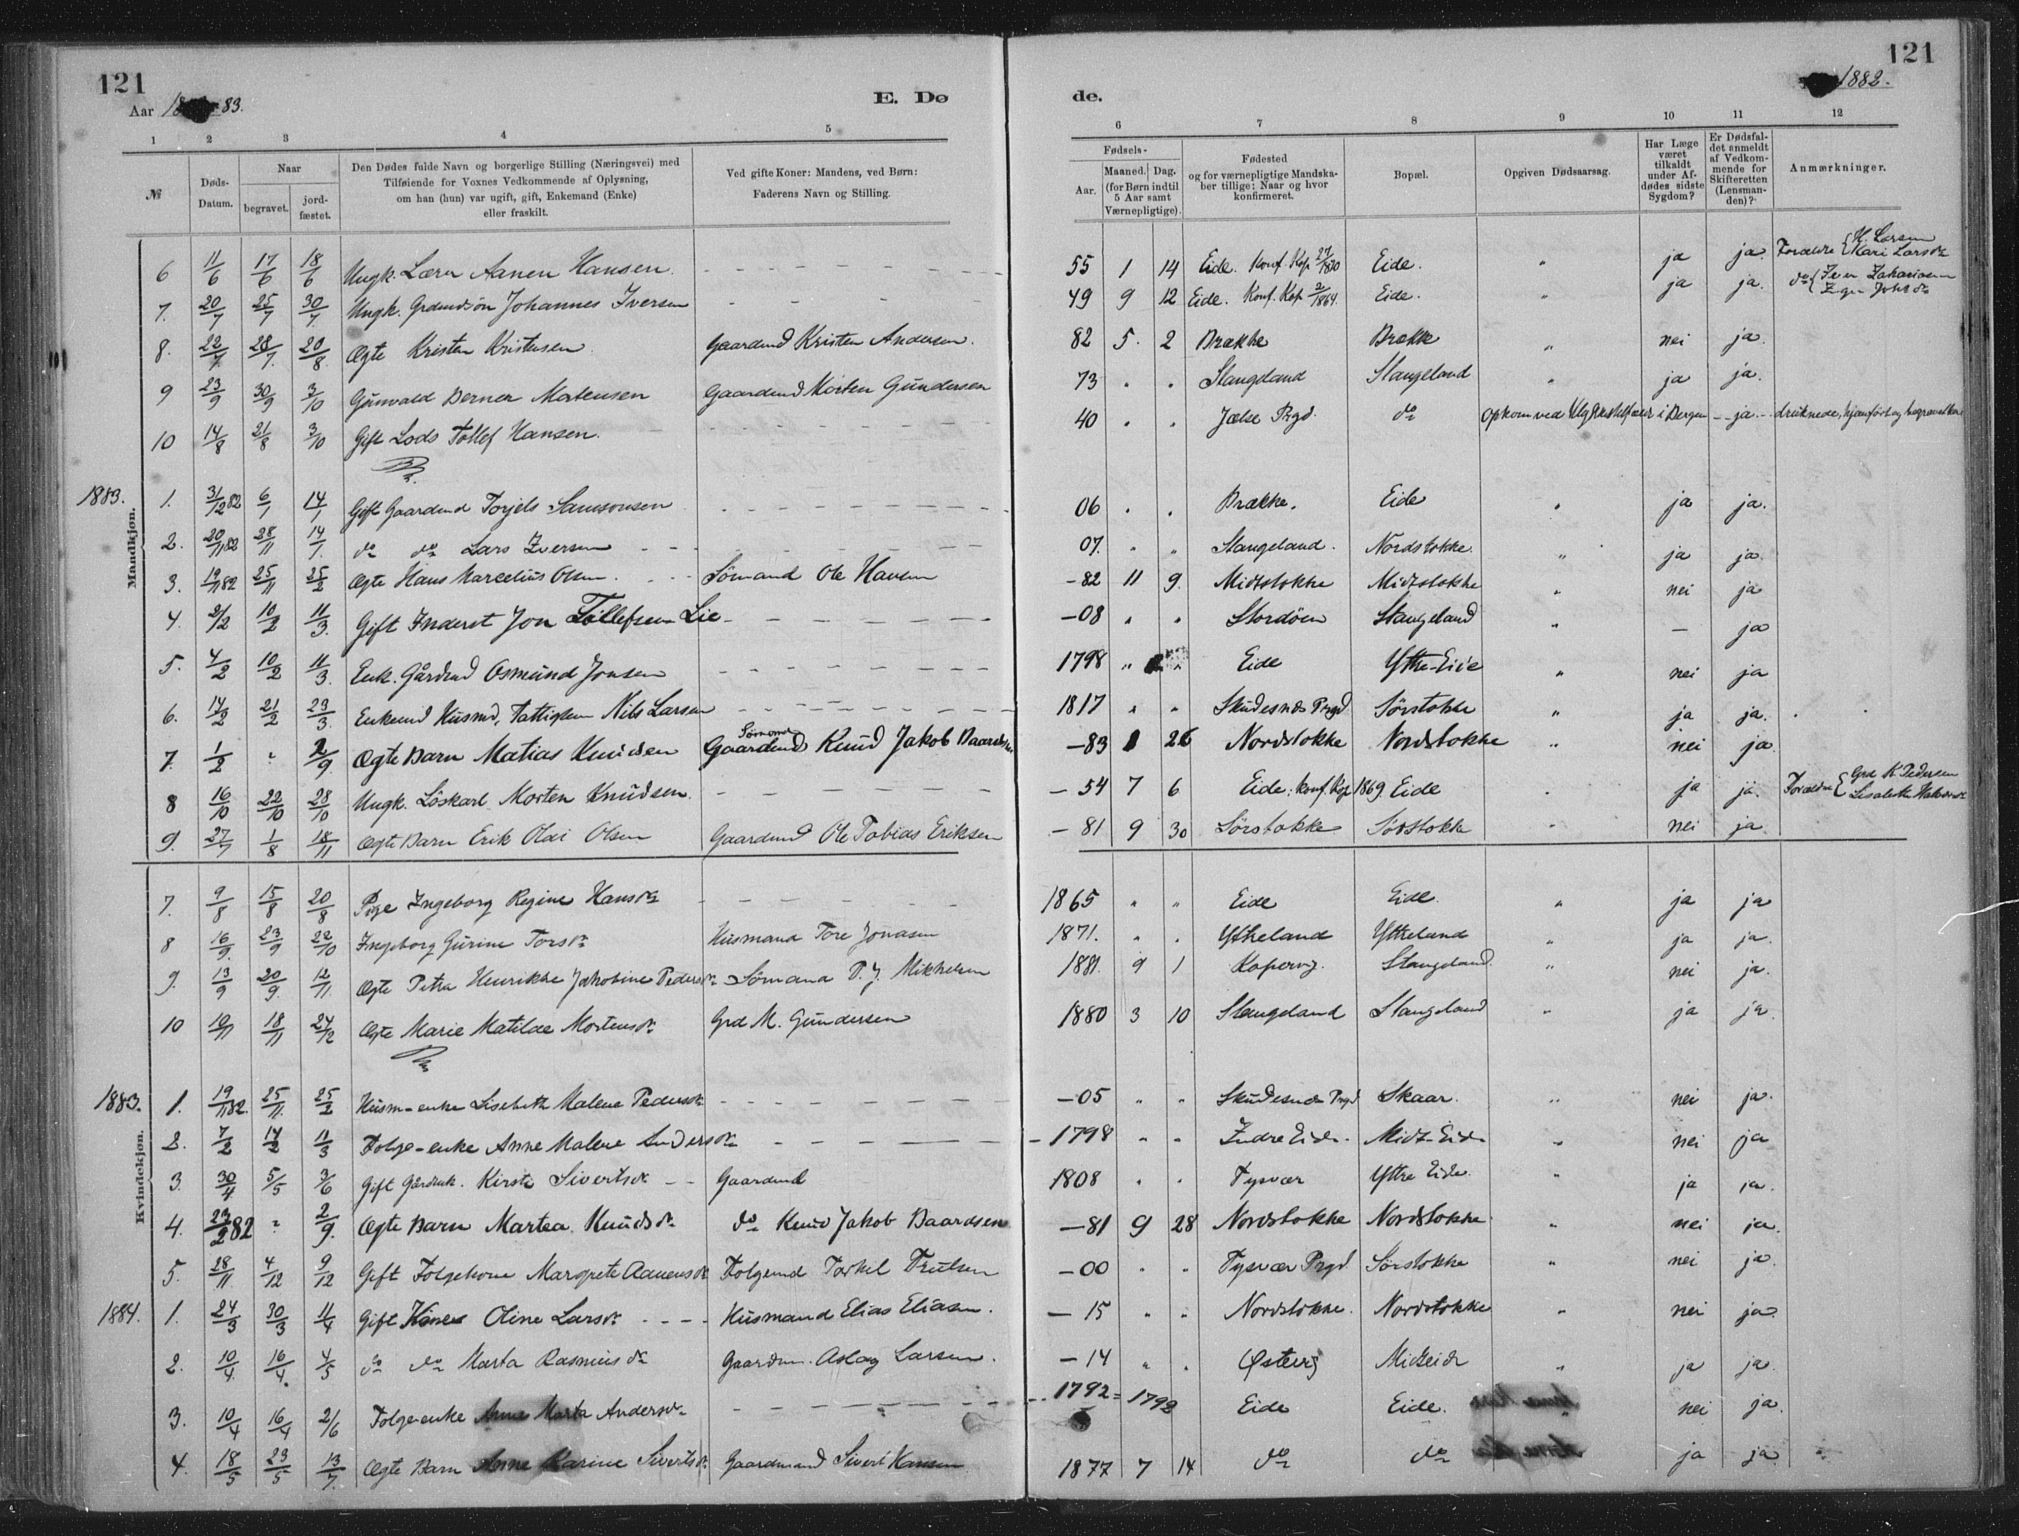 121
121
Aar 83.
1882.
E. Dø
de.
1 2 3 4 5 6 7 8 9 10 11 12
№
Døds-Datum.
Naar
begravet.
jordfæstet.
Den Dødes fulde Navn og borgerlige Stilling (Næringsvei) med
Tilføiende for Voxnes Vedkommende af Oplysning,
om han (hun) var ugift, gift, Enkemand (Enke)
eller fraskilt.
Ved gifte Koner: Mandens, ved Børn:
Faderens Navn og Stilling.
Fødsels-
Aar.
Maaned. Dag.
(for Børn indtil
5 Aar samt
Værnepligtige).
Fødested
og for værnepligtige Mandska-
ber tillige: Naar og hvor
konfirmeret.
Bopæl.
Opgiven Dødsaarsag.
Har Læge
været
tilkaldt
under Af-
dødes sidste
Sygdom?
Er Dødsfal-
det anmeldt
af Vedkom-
mende for
Skifteretten
(Lensman-
den)?
Anmærkninger.
6 11/6 17/6 18/6 Ungk. Aanen Hansen. 55 1 14 Eide. Konf. Kop 1870 Eide. " ja ja Forældre { H. Larsen Kari Larsdr
7. 20/7 25/7 30/7 Ungk. Johannes Iversen 49 9 12 Eide. Konf. Kop 1864. Eide. " ja ja. do { Iver Zakariasen
8. 22/7 28/7. 20/8 Ægte Kristen Kristensen Gaardmd Kristen Andersen. 82 5. 2 Brække Brække " nei ja.
9 23/9 30/9 3/10 Gunvald Berner Mortensen Gaardmd Morten Gundersen 73 " " Stangeland Stangeland " ja ja.
10 14/8 21/8 3/10 Gift Lods Tollef Hansen. 40 " " Jælse Prgd. do i Bergen - ja - druknede, hjemført og begravet her
1883.
Mandkjøn.
1. 31/12 82 6/1 14/1 Gift Gaardmd Torjels Samsonsen 06 " . Brække. Eide " ja ja.
2. 20/11 82 28/11 14/1. do do Lars Iversen 07. " " Stangeland. Nordstokke. " ja ja.
3. 19/11 82 25/11 25/2 Ægte Hans Marcelius Olsen. Sømand Ole Hansen -82 11 9. Midtstokke Midtstokke " nei ja
4. 2/2 10/2 11/3. Gift Inderst Jon Tollefsen Lie -08 " " Stordøen Stangeland " - ja
5. 4/2 10/2 11/3. Enk. Gårdmd Osmund Jonsen 1798 " " Eide Ytre-Eide " nei ja
6. 14/2 21/2 23/3. Enkemd Husmd, Fattiglem Nils Larsen 1817 " " Skudesnes Prgd Sørstokke " ja ja.
7. 1/2 " 2/9 Ægte Barn Matias Knudsen Sømand Gaardmd Knud Jakob Baardsen -83 1 26 Nordstokke Nordstokke " nei ja
8 16/10 22/10 28/10 Ungk. Løskarl Morten Knudsen. -54 7 6 Eide. konf. Kop 1869. Eide " ja ja. Forældre { Grd K Pedersen
9. 27/7 1/8 18/11 Ægte Barn Erik Olai Olsen Gaardmd Ole Tobias Eriksen -81 9 30 Sørstokke Sørstokke " nei ja
7. 9/8 15/8 20/8 Pige Ingeborg Regine Hansdr 1865 " " Eide Eide. " ja ja
8 16/9. 23/9 22/10 Ingeborg Gurine Torsdr Husmand Tore Jonasen 1871. " . Ytreland Ytreland " ja ja.
9. 13/9 20/9. 12/11. Ægte Petra Henrikke Jakobine Pedersdr Sømand P. J. Mikkelsen 1881. 9 1 Kopervig. Stangeland. " nei ja.
10 10/11 18/11 24/12 Ægte Marie Matilde Mortensdr Grd M. Gundersen 1880 3 10 Stangeland Stangeland " ja ja.
1883.
Kvindekjøn.
1. 19/11 82. 25/11. 25/2 Husm-enke Lisebeth Malene Pedersdr -05 " " Skudesnes Prgd Skaar. " nei ja.
2. 7/2 14/2 11/3 Folge-enke Anne Malene Andersdr -1798 " " Indre Eide. Midt-Eide " nei ja
3. 30/4 5/5 3/6 Gift Gårdmk. Kirste Sivertsdr Gaardmd 1808 " . Tysvær Ytre Eide. " ja ja.
4. 23/2 82 " 2/9. Ægte Barn Martea Knudsdr do Knud Jakob Baardsen -81 9 28 Nordstokke Nordstokke. " nei ja.
5. 28/11 4/12 9/12 Gift Folgekone Margrete Aanensdr Folgemd Torkel Trulsen -00 " . Tysvær Prgd. Sørstokke " nei ja.
1884. 1. 24/3 30/3 11/4 Gift Kone Oline Larsdr Husmand Elias Eliasen. -15 " " Nordstokke. Nordstokke " nei ja
2. 10/4. 16/4 4/5 do do Marta Rasmusdr Gaardm. Aslag Larsen. -14 " . Østerø Midteide " ja ja.
3. 10/4 16/4 2/6 Folge-enke Anne Marta Andersdr 1792 = 1792 Eide Eide. nei ja.
4. 18/5 23/5 13/7. Ægte Barn Anne Karine Sivertsdr Gaardmand Sivert Hansen 1877 7 14 do do ja ja.